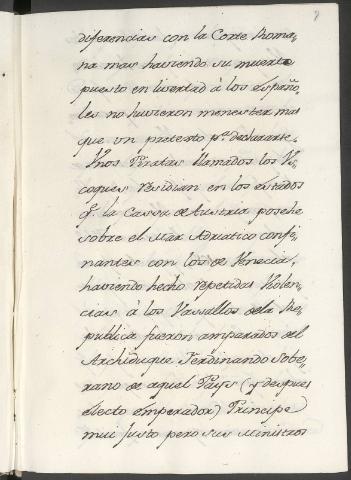 8
diferencias con la Corte Roma-
na mas haviendo su muerte
puesto en livertad â los Españo-
les no huvieron menester mas
que un pretexto p.ª declararse.
Unos Piratas llamados los Vs-
coques residian en los estados
q.ᵉ la Cassa de Austria posehe
sobre el Mar Adriatico confi-
nantes con los de Venecia,
haviendo hecho repetidas Violen-
cias â los Vassallos dela Re-
publica fueron amparados del
Archiduque Ferdinando sobe-
rano de aquel Pays (y despues
electo emperador) Principe
mui Justo pero sus Ministros